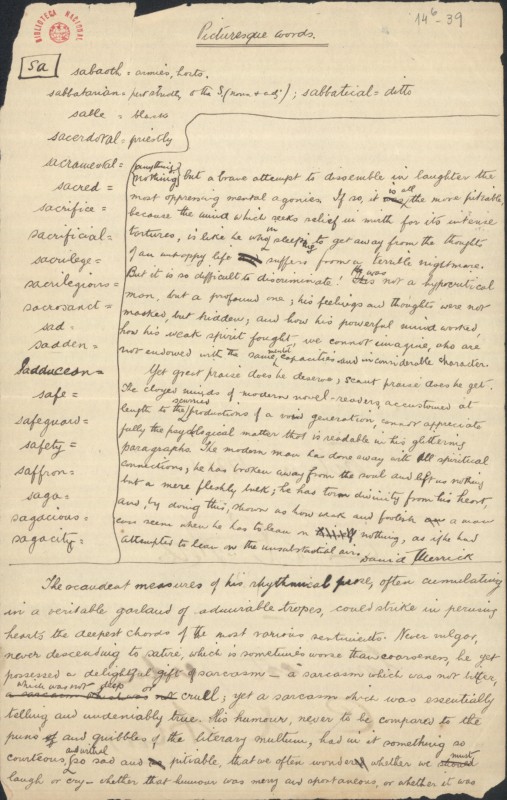 14⁶-39
BIBLIOTECA NACIONAL
Picturesque words.
Sa
sabaoth = armies, hosts.
sabbatarian = ; sabbatical = ditto
sable = black
sacerdotal = priestly
sacramental =
sacred =
sacrifice =
sacrificial =
sacrilege =
sacrilegious =
sacrosanct =
sad =
sadden =
Sadducean =
safe =
safeguard =
safety =
saffron =
saga =
sagacious =
sagacity =
anything
nothing but a brave attempt to dissemble in laughter the
most oppressing mental agonies. If so, it is all the more pitiable,
because the mind which seeks relief in mirth for its intense
tortures, is like he who in sleeping to get away from the thoughts
of an unhappy life suffers from a terrible nightmare.
But it is so difficult to discriminate! He was not a hypocritical
man, but a profound one; his feelings and thoughts were not
masked, but hidden; and how his powerful mind worked,
how his weak spirit fought we cannot imagine, who are
not endowed with the same mental capacities and inconsiderable character.
Yet great praise does he deserve; scant praise does he get.
The cloyed minds of modern novel-readers, accustomed at
length to the productions of a generation, cannot appreciate
fully the psychological matter that is readable in his glittering
paragraphs. The modern man has done away with all spiritual
connections; he has broken away from the soul and left us nothing
but a mere fleshly bulk; he has torn divinity from his heart,
and, by doing this, shown us how weak and foolish a man
can seem when he has to lean on nothing, as if he had
attempted to lean on the unsubstantial air.
David Merrick
The scandent measures of his rhythmical prose, often cumulating
in a veritable garland of admirable tropes, could strike in perusing
hearts the deepest chords of the most various sentiments. Never vulgar,
never descending to satire, which is sometimes worse than coarseness, he yet
possessed a delightful gift of sarcasm – a sarcasm which was not bitter,
which was not deep or cruel; yet a sarcasm which was essentially
telling and undeniably true. His humour, never to be compared to the
puns and quibbles of the literary multum, had in it something so
courteous, so sad and pitiable, that we often wonder whether we must
laugh or cry – whether that humour was merry and spontaneous, or whether it was